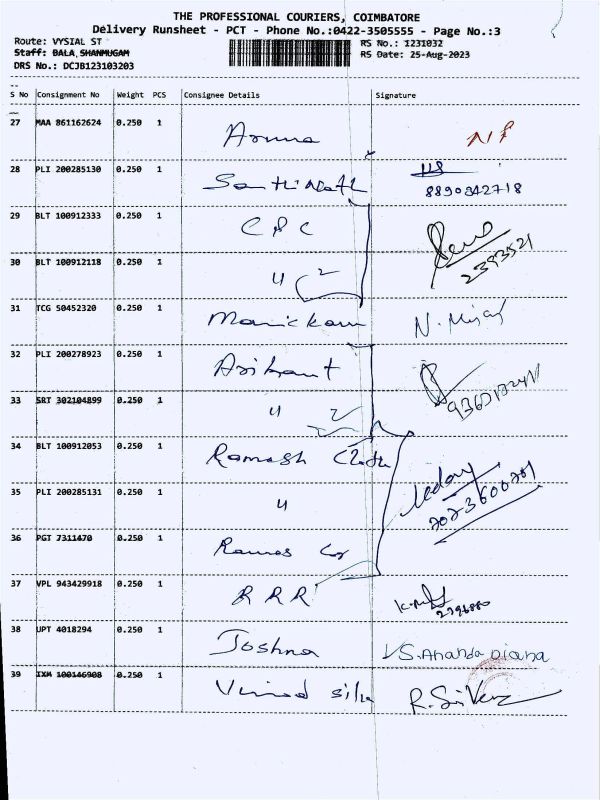 THE PROFESSIONAL COURIERS, COIMBATORE
Delivery Runsheet - PCT - Phone No.:0422-3505555 - Page No.:3
Route: VYSIAL ST RS No.: 1231032
Staff: BALA,SHANMUGAM RS Date: 25-Aug-2023
DRS No.: DCJB123103203
S No Consignment No Weight PCS Consignee Details Signature
27 MAA 861162624 0.250 1 Aruna NP
28 PLI 200285130 0.250 1 Santhinath
8890842718
29 BLT 100912333 0.250 1 C P C
2393521
30 BLT 100912118 0.250 1 u 2
31 TCG 50452320 0.250 1 Manickam N.
32 PLI 200278923 0.250 1 Arihant
33 SRT 302104899 0.250 1 u 2
34 BLT 100912053 0.250 1 Ramesh
35 PLI 200285131 0.250 1 u
7073600701
36 PGT 7311470 0.250 1
37 VPL 943429918 0.250 1 R R R
38 UPT 4018294 0.250 1 Joshna VS.Ananda Diana
39 IXM 100146908 0.250 1 Vinod silk